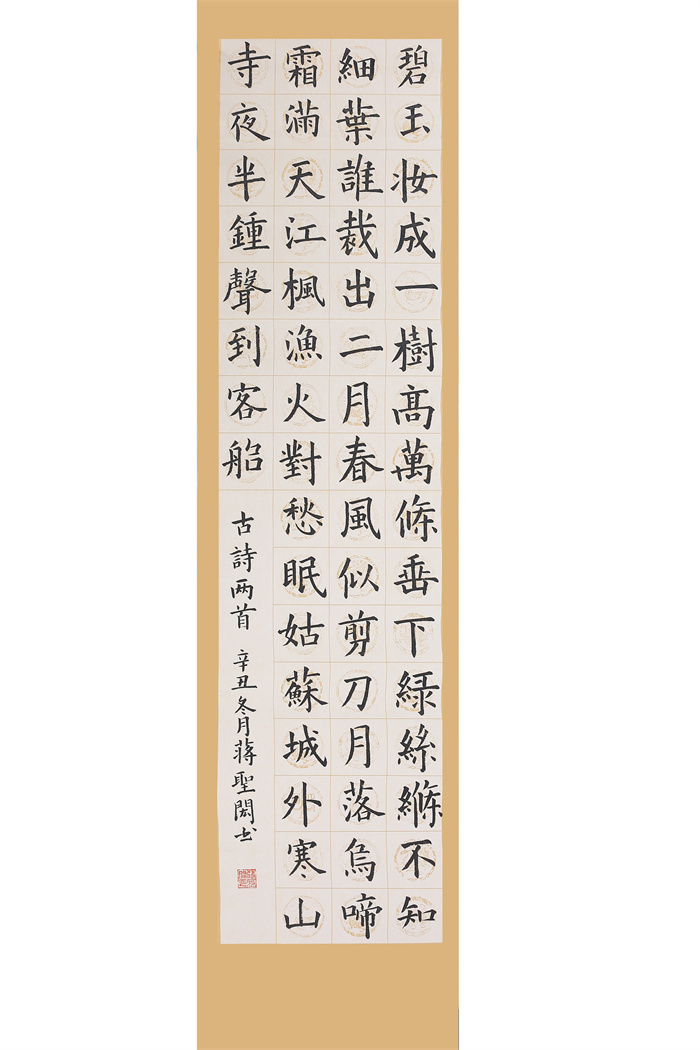 碧玉妝成一樹髙萬條垂下緑絲縧不知
細葉誰裁出二月春風似剪刀月落烏啼
霜滿天江楓漁火對愁眠姑蘇城外寒山
寺夜半鍾聲到客船
古詩两首 辛丑冬月蔣聖閎书